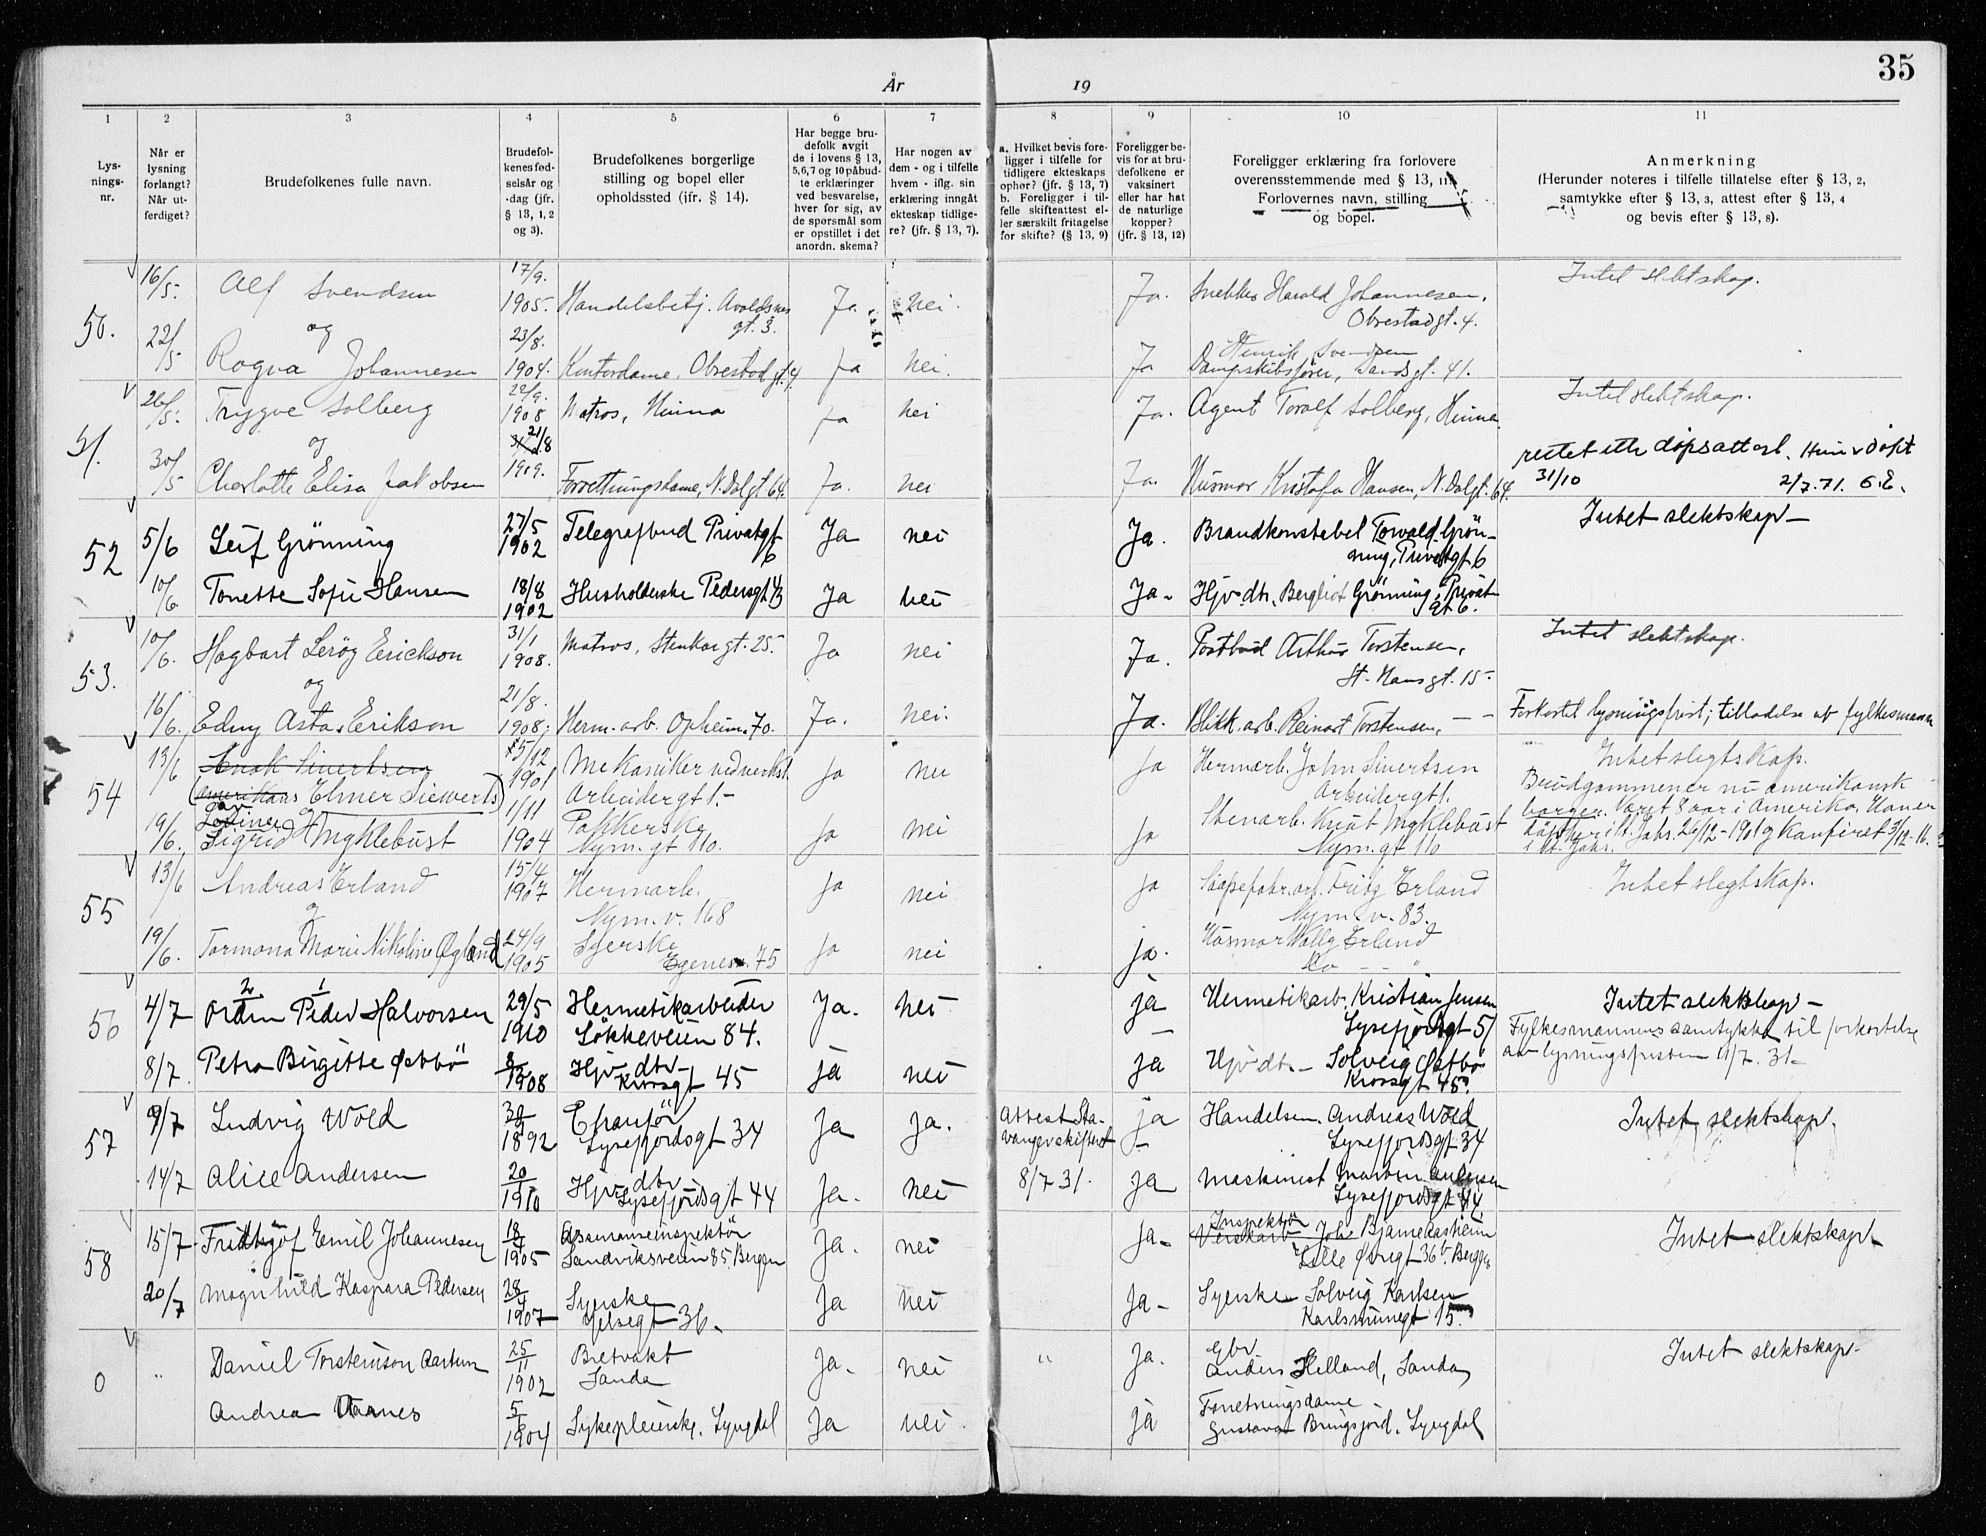 35
År 19
1 2 3 4 5 6 7 8 9 10 11
Lys-
nings-
nr.
Når er
lysning
forlangt?
Når ut-
ferdiget?
Brudefolkenes fulle navn.
Brudefol-
kenes fød-
selsår og
-dag (jfr.
§ 13, 1, 2
og 3).
Brudefolkenes borgerlige
stilling og bopel eller
opholdssted (ifr. § 14).
Har begge bru-
defolk avgit
de i lovens § 13,
5,6,7 og 10 påbud-
te erklæringer
ved besvarelse,
hver for sig, av
de spørsmål som
er opstillet i det
anordn. skema?
Har nogen av
dem - og i tilfelle
hvem - iflg. sin
erklæring inngått
ekteskap tidlige-
re? (jfr. § 13, 7).
a. Hvilket bevis fore-
ligger i tilfelle for
tidligere ekteskaps
ophør? (jfr. § 13, 7)
b. Foreligger i til-
felle skifteattest el-
ler særskilt fritagelse
for skifte? (§ 13, 9)
Foreligger be-
vis for at bru-
defolkene er
vaksinert
eller har hat
de naturlige
kopper?
(jfr. § 13, 12)
Foreligger erklæring fra forlovere
overensstemmende med § 13, 11.
Forlovernes navn, stilling
og bopel.
Anmerkning
(Herunder noteres i tilfelle tillatelse efter § 13, 2,
samtykke efter § 13, 3, attest efter § 13, 4
og bevis efter § 13, 8).
50. 16/5. Alf Svendsen 17/9. 1905. Handelsbetj. Avaldsnes
gt. 3. Ja. nei. Ja. Snekker Harald Johannesen,
Obrestadgt. 4. Intet slektskap.
og
22/5 Ragna Johannesen 23/8. 1904. Kontordame, Obrestad gt. 4. Ja nei. Ja Henrik Svendsen
Dampskibsfører, Sandsgt. 41.
51. 26/5. Trygve Solberg 22/9. 1908 Matros, Hinna Ja nei Ja. Agent Toralf Solberg, Hinna. Intet slektskap.
og
30/5 Charlotte Elisa Jakobsen 21/8 1909. Forretningsdame, N. Dalgt 64. Ja. nei Ja. Husmor Kristofa Hansen, N. Dalgt. 64.
31/10 2/7.71.
52 5/6 Leif Grönning 27/5 1902 Telegrafbud Privatgt
6 Ja nei Ja. Brandkonstabel Torvald Grön-
ning, Privatgt 6 Intet slektskap—
10/6 Tonette Sofie Hansen 18/8 1902 Husholderske Pedersgt 43 Ja nei Ja. Hjv. dtr. Bergliot Grönning, Privat-
gt 6.
53. 10/6. Hagbart Lerög Erickson 31/1 1908. Matros, Stenkargt. 25. Ja nei Ja. Postbud Arthur Torstensen,
St. Hansgt. 15. Intet slektskap.
og
16/6. Edny Asta Erikson 21/8. 1908. Herm. arb. Opheim. 70. Ja. nei. Ja. Blikk. arb. Reinart Torstensen, — — Forkortet lysningsfrist; tilladelse av fylkesmann
54 13/6 Enok Sivertsen 15/12 1901 Mekaniker ved verkst.
(amerikans Elmer Siewerts) Arbeidergt 1.— Ja nei Ja Hermarb. John Sivertsen
Arbeidergt 1. Intet slegtskap.
Brudgommen er nu amerikansk
borger. Været 8 aar i Amerika. Han er
19/6. Sigrid Myklebust 1/11 1904 Pakkerske
Nym. gt 110. Ja nei Ja Stenarb. Knut Myklebust
Nym. gt 110
55 13/6 Andreas Erland 15/4 1907 Hermarb.
Nym. v. 168 Ja nei Ja Saapefabr. arb. Fritz Erland
Nym. v. 83. Intet slegtskap.
og
19/6. Tormona Marie Nikoline Øgland 24/9 1905 Syerske
Egenesv. 75 Ja nei Ja. Husmor Wally Erland
Do — — "
56 4/7 Ordin Peder Halvorsen 29/5 1910 Hermetikarbeider
Løkkeveien 84. Ja. nei ja Hermetikarb. Kristian Jensen
Lysefjordgt 51 Intet slektskap—
Fylkesmannens samtykke til forkortelse
av lysningsfristen 11/7. 31—
8/7. Petra Birgitte Østbö 1908 Hjv. dtr.
Krossgt 45 ja nei ja Hjv. dtr. — Solveig Østbö
Krossgt 45.
57 9/7 Ludvig Wold 1892 Chauför
Lysefjordsgt 34 Ja Ja. Attest Sta-
vanger skifteret
8/7 31. ja Handelsm. Andreas Wold
Lysefjordsgt 34 Intet slektskap.
14/7 Alice Andersen 1910 Hjv. dtr
Lysefjordsgt 44 Ja. nei ja Maskinist Martin Andersen
Lysefjordsgt 44.
58 15/7 Fridtjof Emil Johannesen 1905 Assuranseinspektör
Sandviksveien 85. Bergen Ja. nei Ja. Inspektör
Bjarne Aasheim
Lille Øvregt 36b. Bergen Intet slektskap.
20/7 Magnhild Kaspara Pedersen 28/4 1907 Syerske
Jelsegt 36. Ja nei Ja. Syerske Solveig Karlsen
Karlsminnegt 15.
0 " Daniel Torsteinson Aartun 25/11 1902 Bretvakt
Sande Ja. nei " Ja. Gbr
Anders Helland, Sanda Intet slektskap.
Andrea Vaanes 1904 Sykepleierske. Lyngdal Ja nei ja Forretningsdame
Gustava Bringsjord. Lyngdal